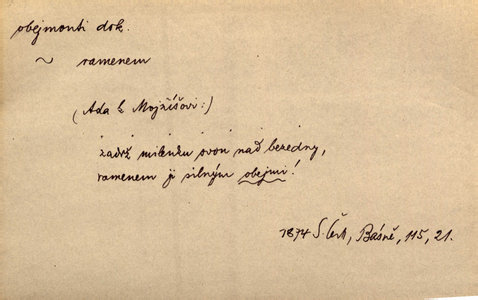 obejmouti dok.
~ ramenem
(Ada k Mojžíšovi:)
zadrž milenku svou nad bezedny,
ramenem ji silným obejmi!
1874 S. Čech, Básně, 115, 21.